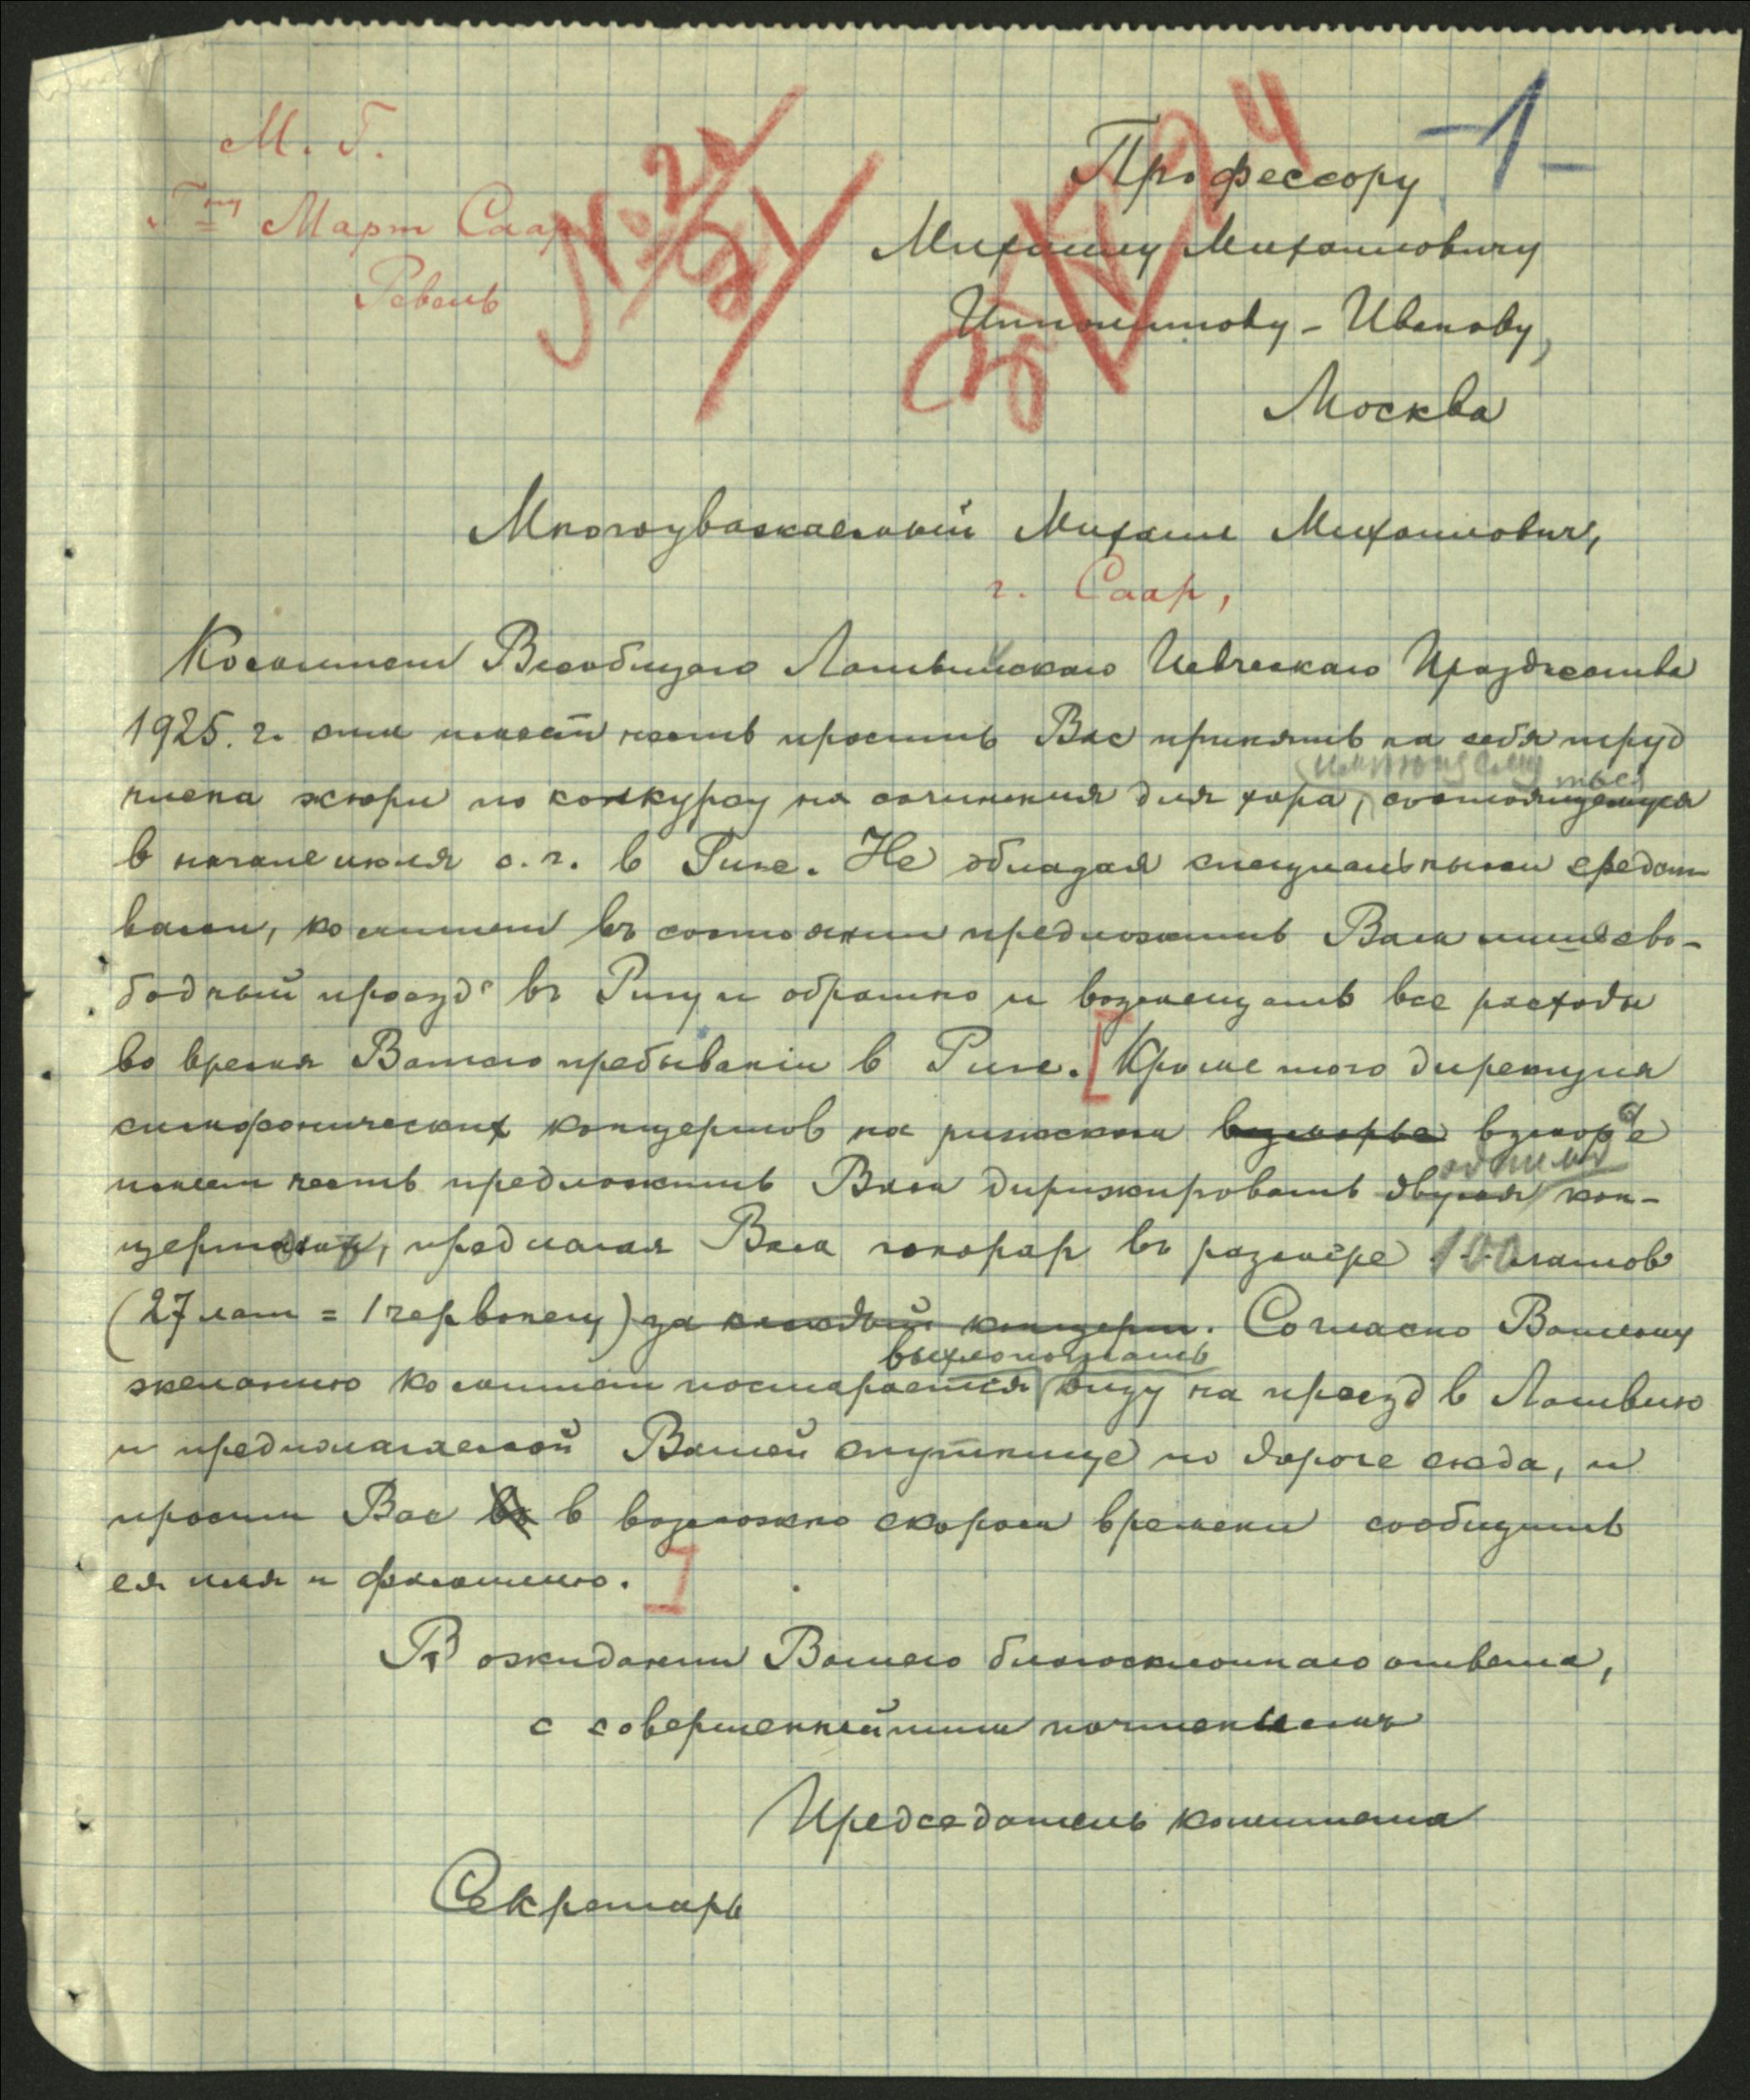 М. Г.
Г-ну Март Саар
Ревель
№ 21
1
Профессору
Михаилу Михаиловичу
Ипполитову-Иванову,
Москва
Многоуважаемый Михаил Михаилович,
г. Саар,
Комитет Всеобщего Латвийскаго Певческаго Празднества
1925. г. сим имеет честь просить Вас принять на себя труд
члена жюри по конкурсу на сочинения для хора, состоящемуся
имеющему ться
в начале июля с. г. в Риге. Не обладая специальными средст
вами, комитет въ состоянии предложить Вам лишь сво-
бодный проезд въ Ригу и обратно и возмещать все расходы
во время Вашего пребыванiи в Риге. [Кроме того дирекция
симфонических концертов на рижском взморье взморье
имеет честь предложить Вам дирижировать двумя кон-
одним
цертами, предлагая Вам гонорар въ размѣре 100 латов
(27 лат = 1 червонец) за каждый концерт. Согласно Вашему
выхлопотать
желанию комитет постарается визу на проезд в Латвию
и предполагаемой Вашей спутнице по дороге сюда, и
просит Вас въ в возможно скором времени сообщить
ея имя и фамилию.]
В ожидании Вашего благосклоннаго ответа,
с совершеннейшим почтением
Председатель комитета
Секретарь